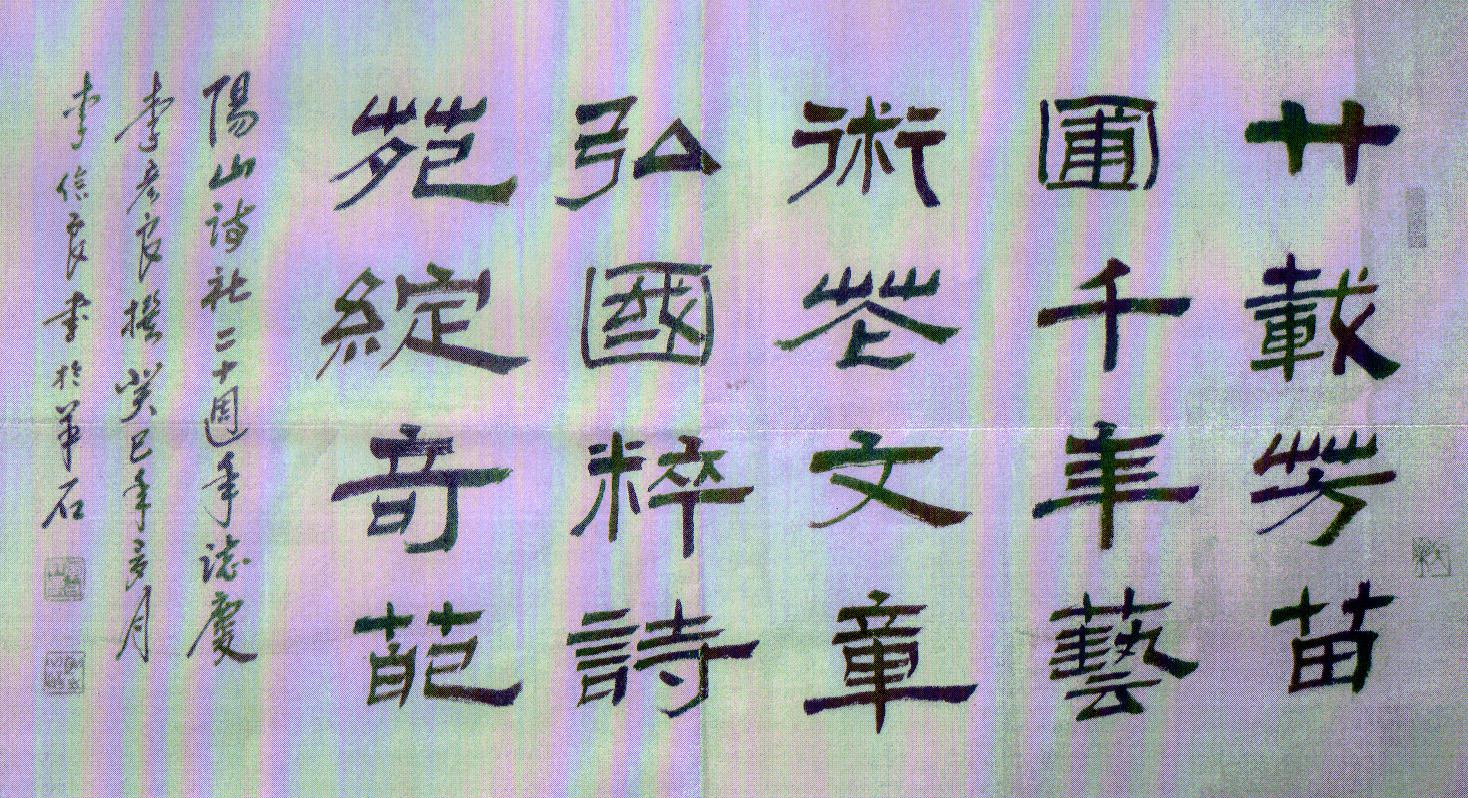 廿載芳苗
圃千年藝
術花文章
弘國粹詩
苑綻奇葩
陽山詩社二十週年誌慶
李彥良撰 癸巳年冬月
李信良書於羊石